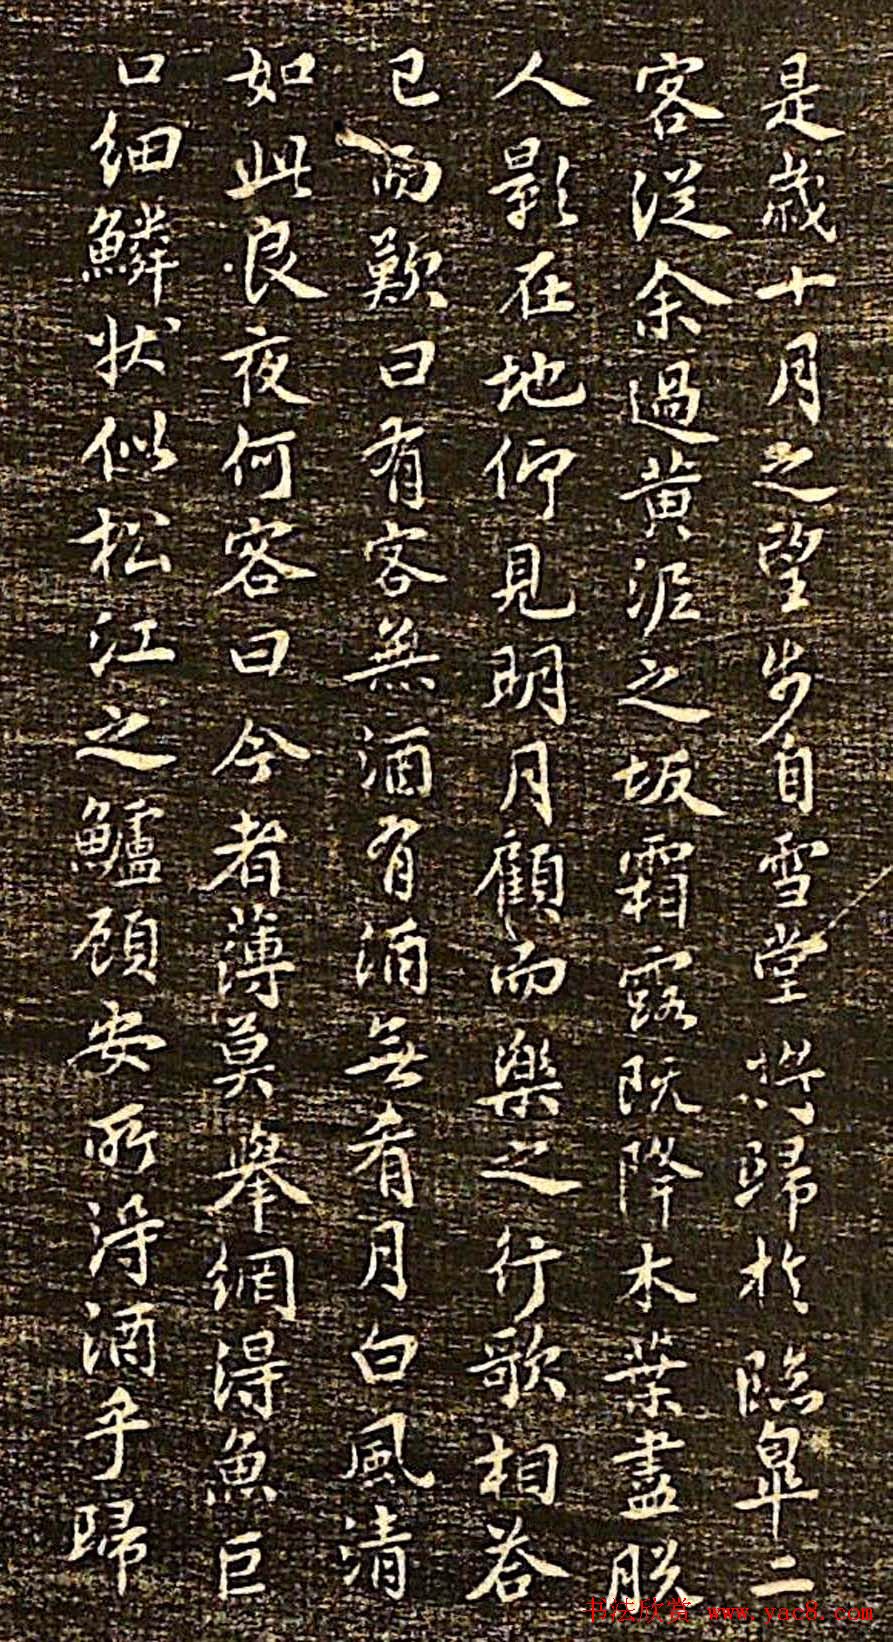 是歲十月之望步自雪堂將歸於臨皐二
客從余過黃泥之坂霜露既降木葉盡脫
人影在地仰見明月顧而樂之行歌相答
已而歎曰有客無酒有酒無肴月白風清
如此良夜何客曰今者薄莫舉網得魚巨
口細鱗狀似松江之鱸顧安所得酒乎歸
书法欣赏 www.yac8.com